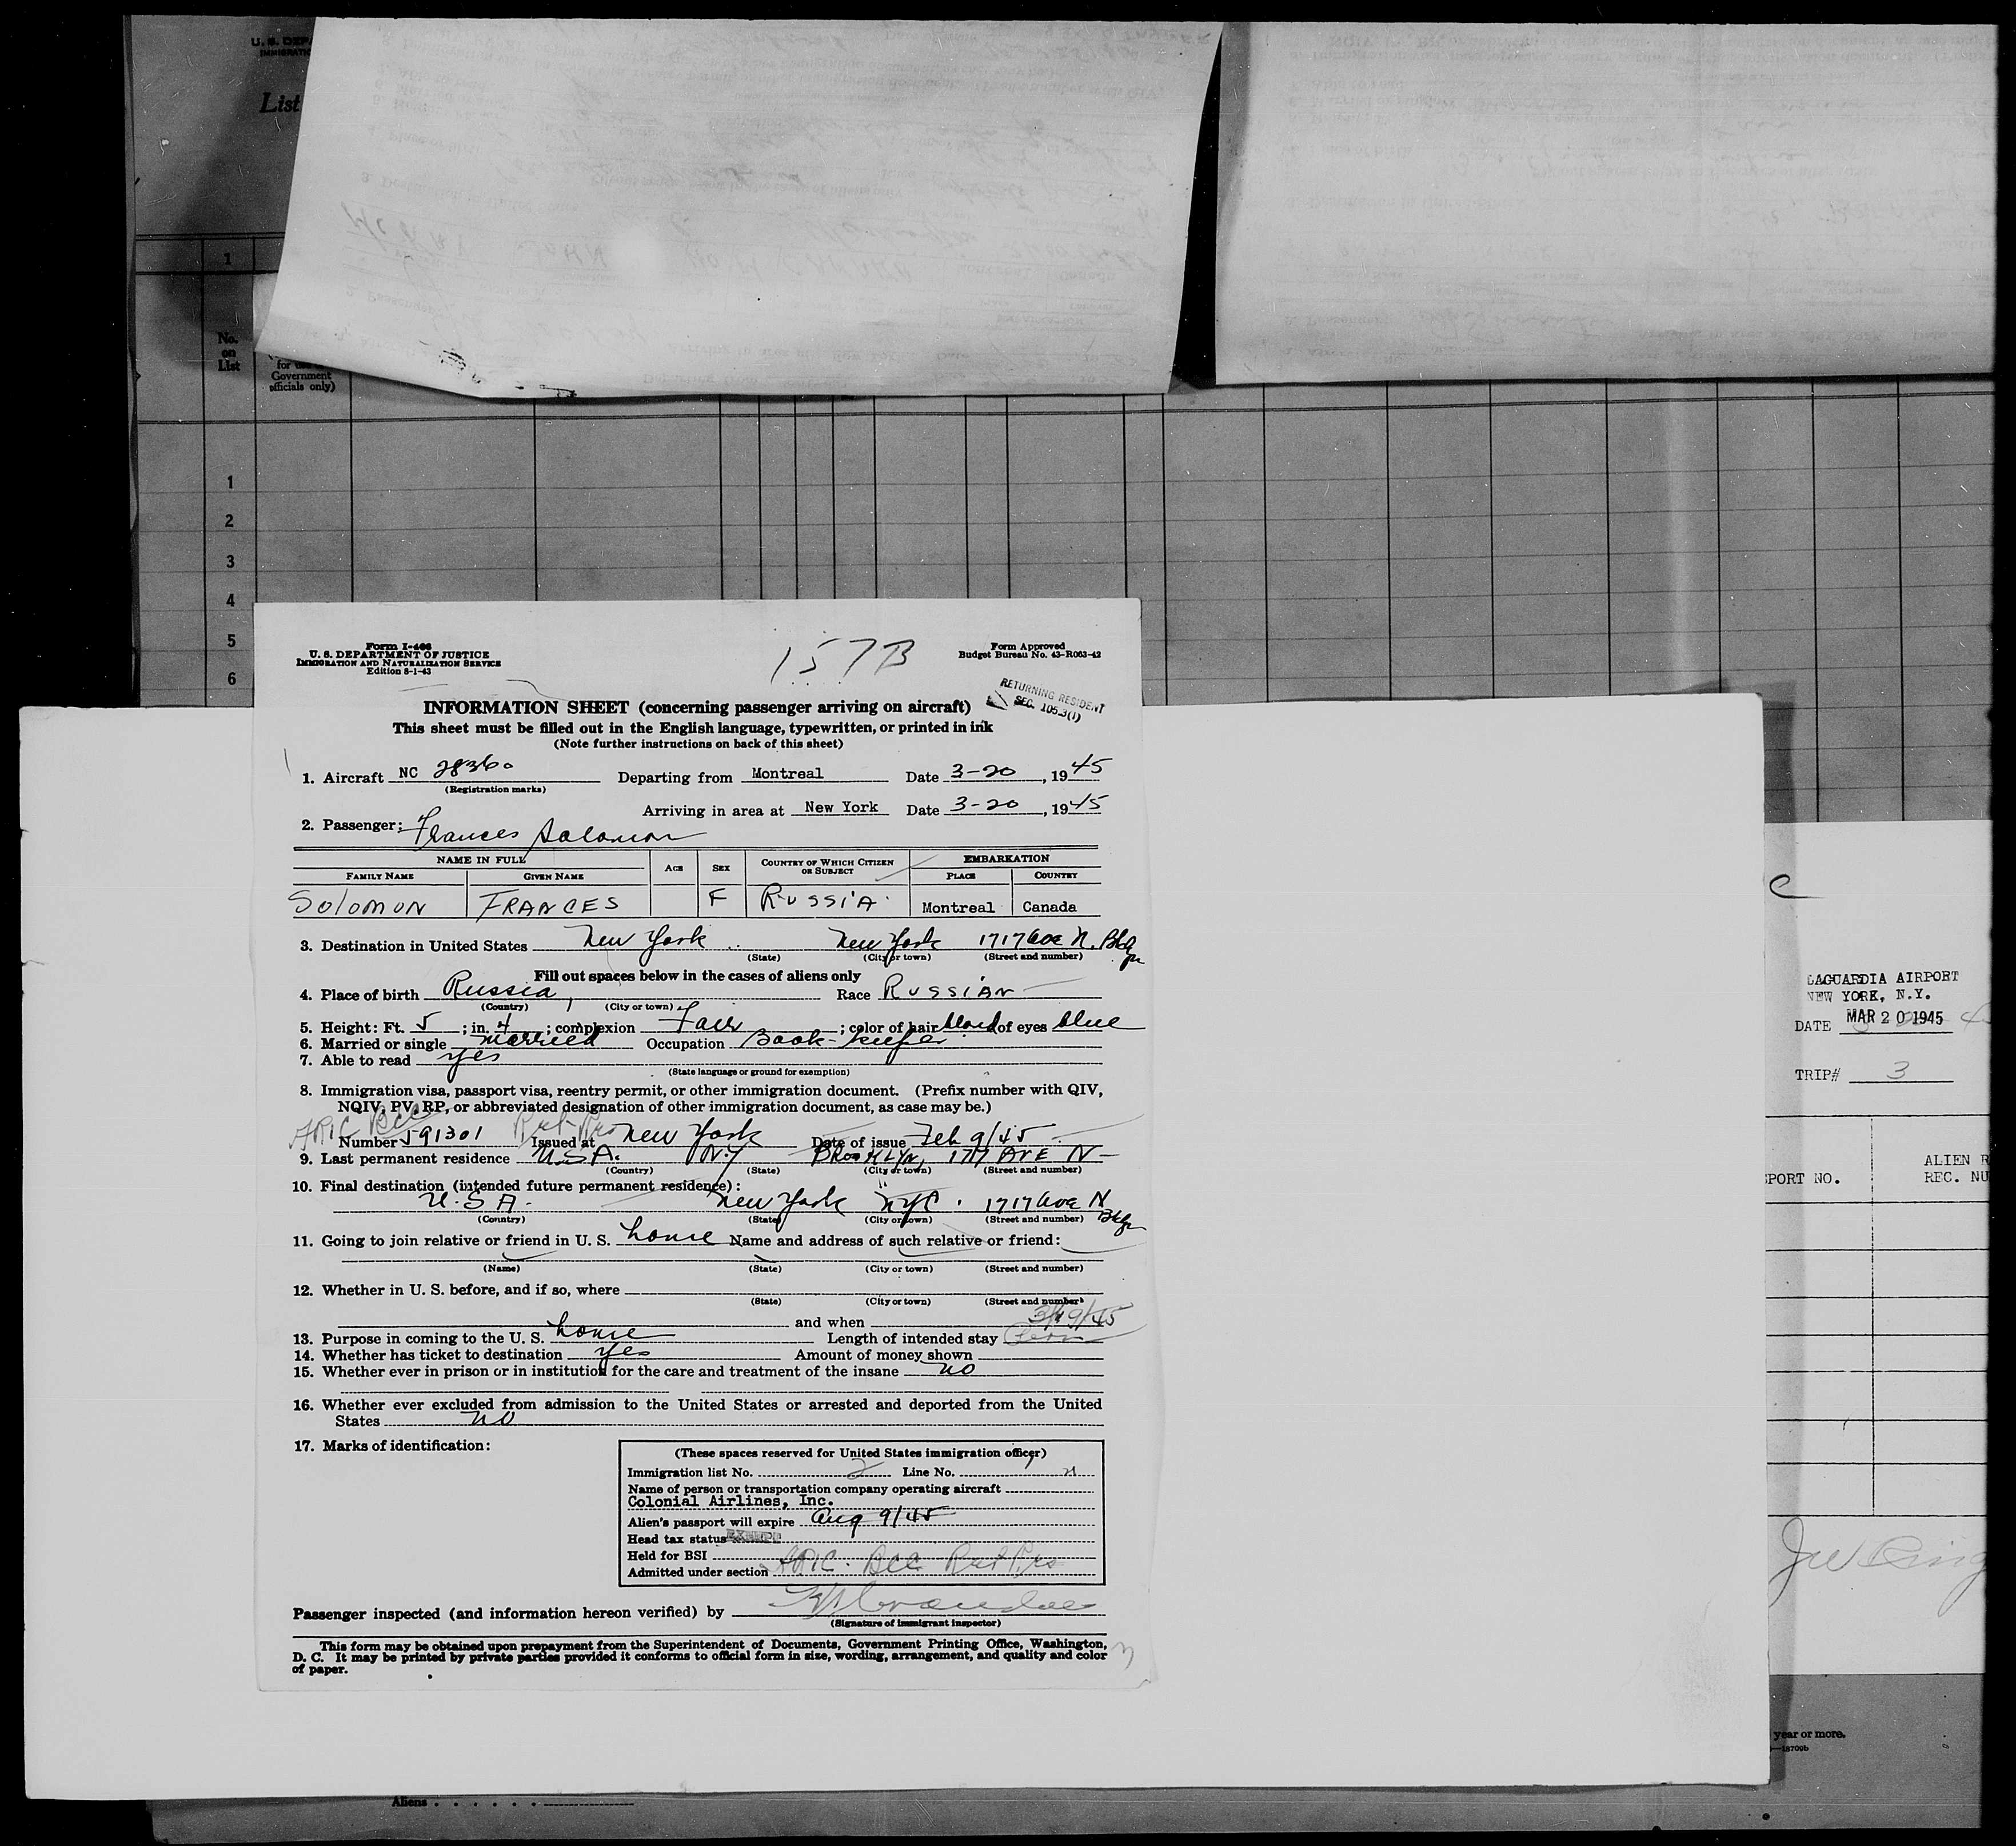 U. S. DEP
IMMIGRATIO
List
1
No.
on
List
for use
Government
officials only)
1
2
3
4
5
6
Form I-466
U. S. DEPARTMENT OF JUSTICE
IMMIGRATION AND NATURALIZATION SERVICE
Edition 8-1-43
157B
Form Approved
Budget Bureau No. 43-R063-42
RETURNING RESIDENT
SEC. 105.3(1)
INFORMATION SHEET (concerning passenger arriving on aircraft)
This sheet must be filled out in the English language, typewritten, or printed in ink
(Note further instructions on back of this sheet)
1. Aircraft NC 28360 Departing from Montreal Date 3-20, 1945
(Registration marks)
Arriving in area at New York Date 3-20, 1945
2. Passenger: Frances Solomon
NAME IN FULL AGE SEX COUNTRY OF WHICH CITIZEN OR SUBJECT EMBARKATION
FAMILY NAME GIVEN NAME PLACE COUNTRY
SOLOMON FRANCES F RUSSIA Montreal Canada
3. Destination in United States New York New York 1717 Ave N. Bklyn
(State) (City or town) (Street and number)
Fill out spaces below in the cases of aliens only
4. Place of birth Russia Race RUSSIAN
(Country) (City or town)
5. Height: Ft. 5; in. 4; complexion Fair; color of hair blond of eyes blue
6. Married or single married Occupation Book-keeper
7. Able to read yes
(State language or ground for exemption)
8. Immigration visa, passport visa, reentry permit, or other immigration document. (Prefix number with QIV,
NQIV, PV, RP, or abbreviated designation of other immigration document, as case may be.)
Number 591301 Issued at New York Date of issue Feb 9/45
9. Last permanent residence U.S.A. N.Y BROOKLYN, 1717 AVE N
(Country) (State) (City or town) (Street and number)
10. Final destination (intended future permanent residence):
U.S A. New York NYC. 1717 Ave N Bklyn
(Country) (State) (City or town) (Street and number)
11. Going to join relative or friend in U. S. home Name and address of such relative or friend:
(Name) (State) (City or town) (Street and number)
12. Whether in U. S. before, and if so, where
(State) (City or town) (Street and number)
and when 3/19/45
13. Purpose in coming to the U. S. home Length of intended stay
14. Whether has ticket to destination yes Amount of money shown
15. Whether ever in prison or in institution for the care and treatment of the insane no
16. Whether ever excluded from admission to the United States or arrested and deported from the United
States no
17. Marks of identification:
(These spaces reserved for United States immigration officer)
Immigration list No. 2 Line No.
Name of person or transportation company operating aircraft
Colonial Airlines, Inc.
Alien's passport will expire Aug 9/45
Head tax status EXEMPT
Held for BSI
Admitted under section
Passenger inspected (and information hereon verified) by
(Signature of immigrant inspector)
This form may be obtained upon prepayment from the Superintendent of Documents, Government Printing Office, Washington,
D. C. It may be printed by private parties provided it conforms to official form in size, wording, arrangement, and quality and color
of paper.
LAGUARDIA AIRPORT
NEW YORK, N.Y.
DATE MAR 20 1945
TRIP# 3
PORT NO.
ALIEN R
REC. NU
year or more.
Aliens